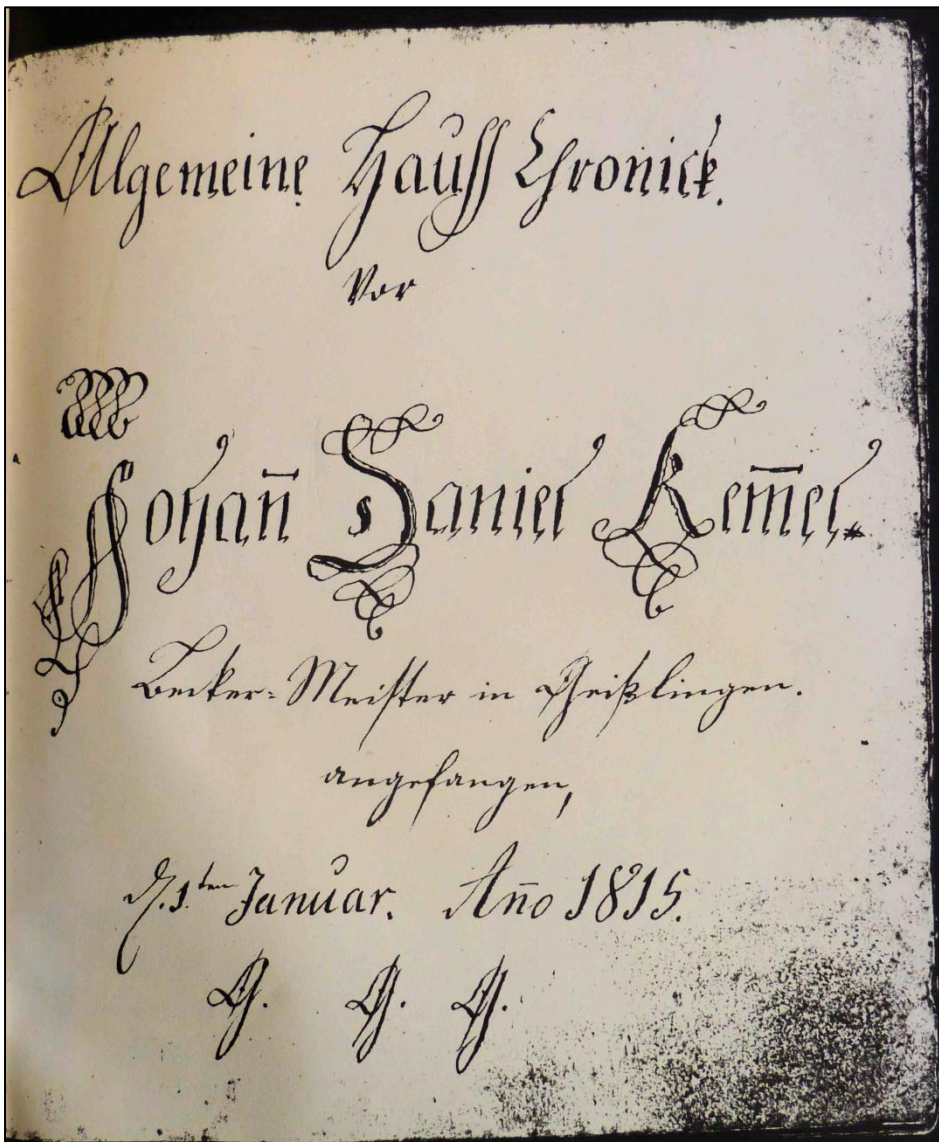 Algemeine Hauſſ Chronick.
Vor
Johan̅ Daniel Kem̅el.
Becker-Meiſter in Geißlingen.
angefangen,
d. 1.ten Januar. An̅o 1815.
G. G. G.